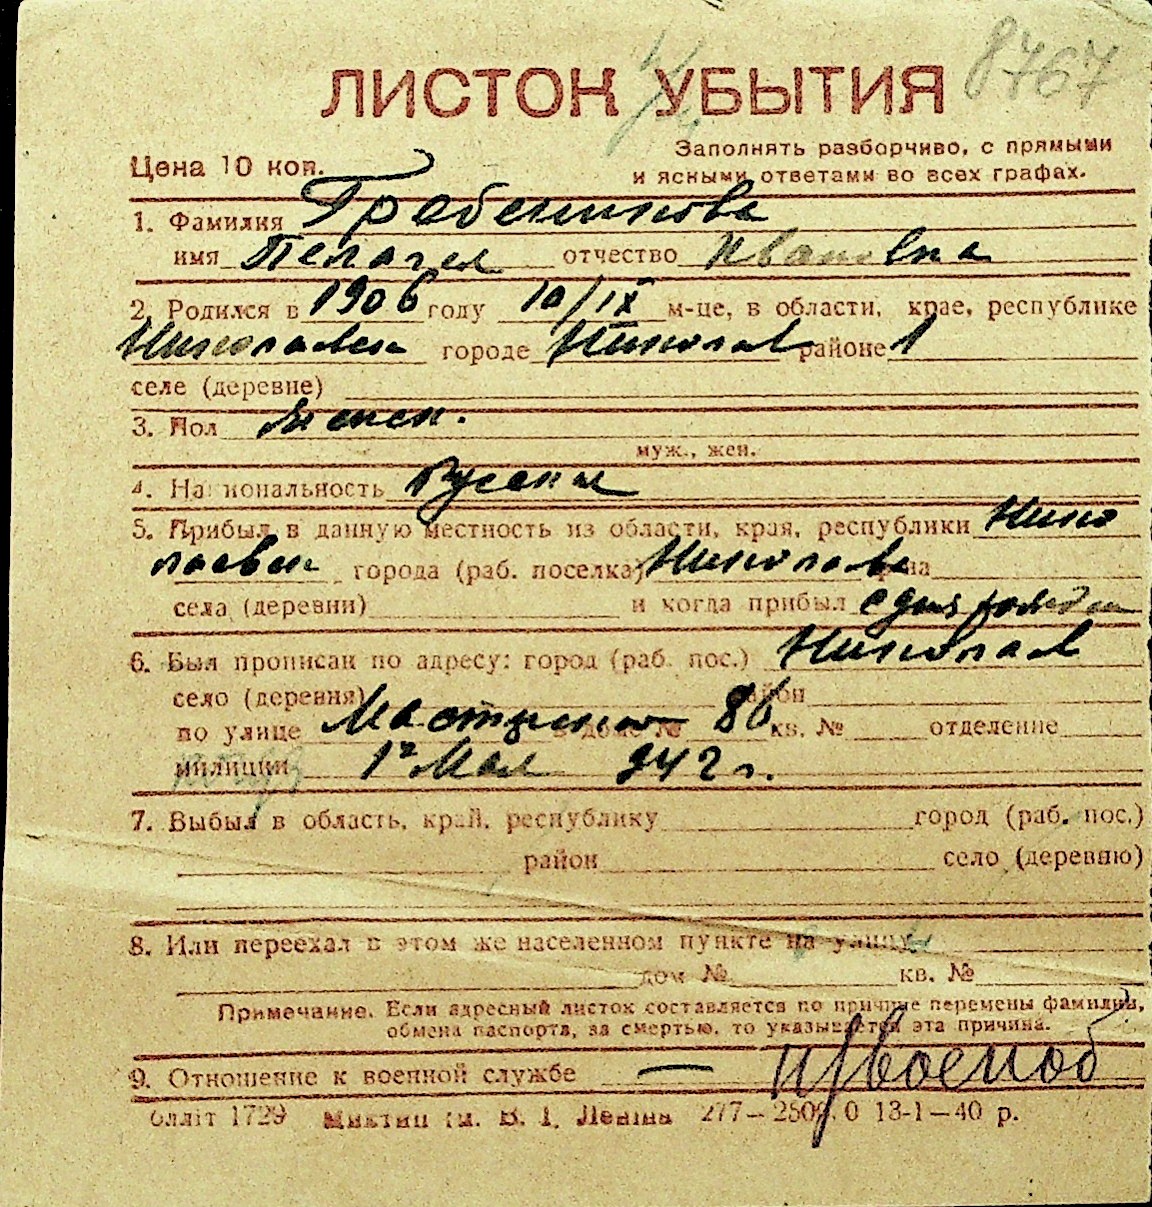 8767
ЛИСТОК УБЫТИЯ
Цена 10 коп.
Заполнять разборчиво, с прямыми
и ясными ответами во всех графах.
1. Фамилия Гребенникова
имя Пелагея отчество Ивановна
2. Родился в 1906 году 10/IX м-це, в области, крае, республике
Николаевск городе Николаев районе 1
селе (деревне)
3. Пол женск.
муж., жен.
4. Национальность Русская
5. Прибыл в данную местность из области, края, республики Нико
лаевск города (раб. поселка) Николаева
села (деревни) и когда прибыл с дня рожден
6. Был прописан по адресу: город (раб. пос.) Николаев
село (деревня) район
по улице 86 в доме № кв. № отделение
милиции 1го Мая 942 г.
7. Выбыл в область, край, республику город (раб. пос.)
район село (деревню)
8. Или переехал в этом же населенном пункте на улицу
дом № кв. №
Примечание. Если адресный листок составляется по причине перемены фамилии,
обмена паспорта, за смертью, то указывается эта причина.
9. Отношение к военной службе —
1729 ім. В. І. Леніна 277— 13-1—40 р.